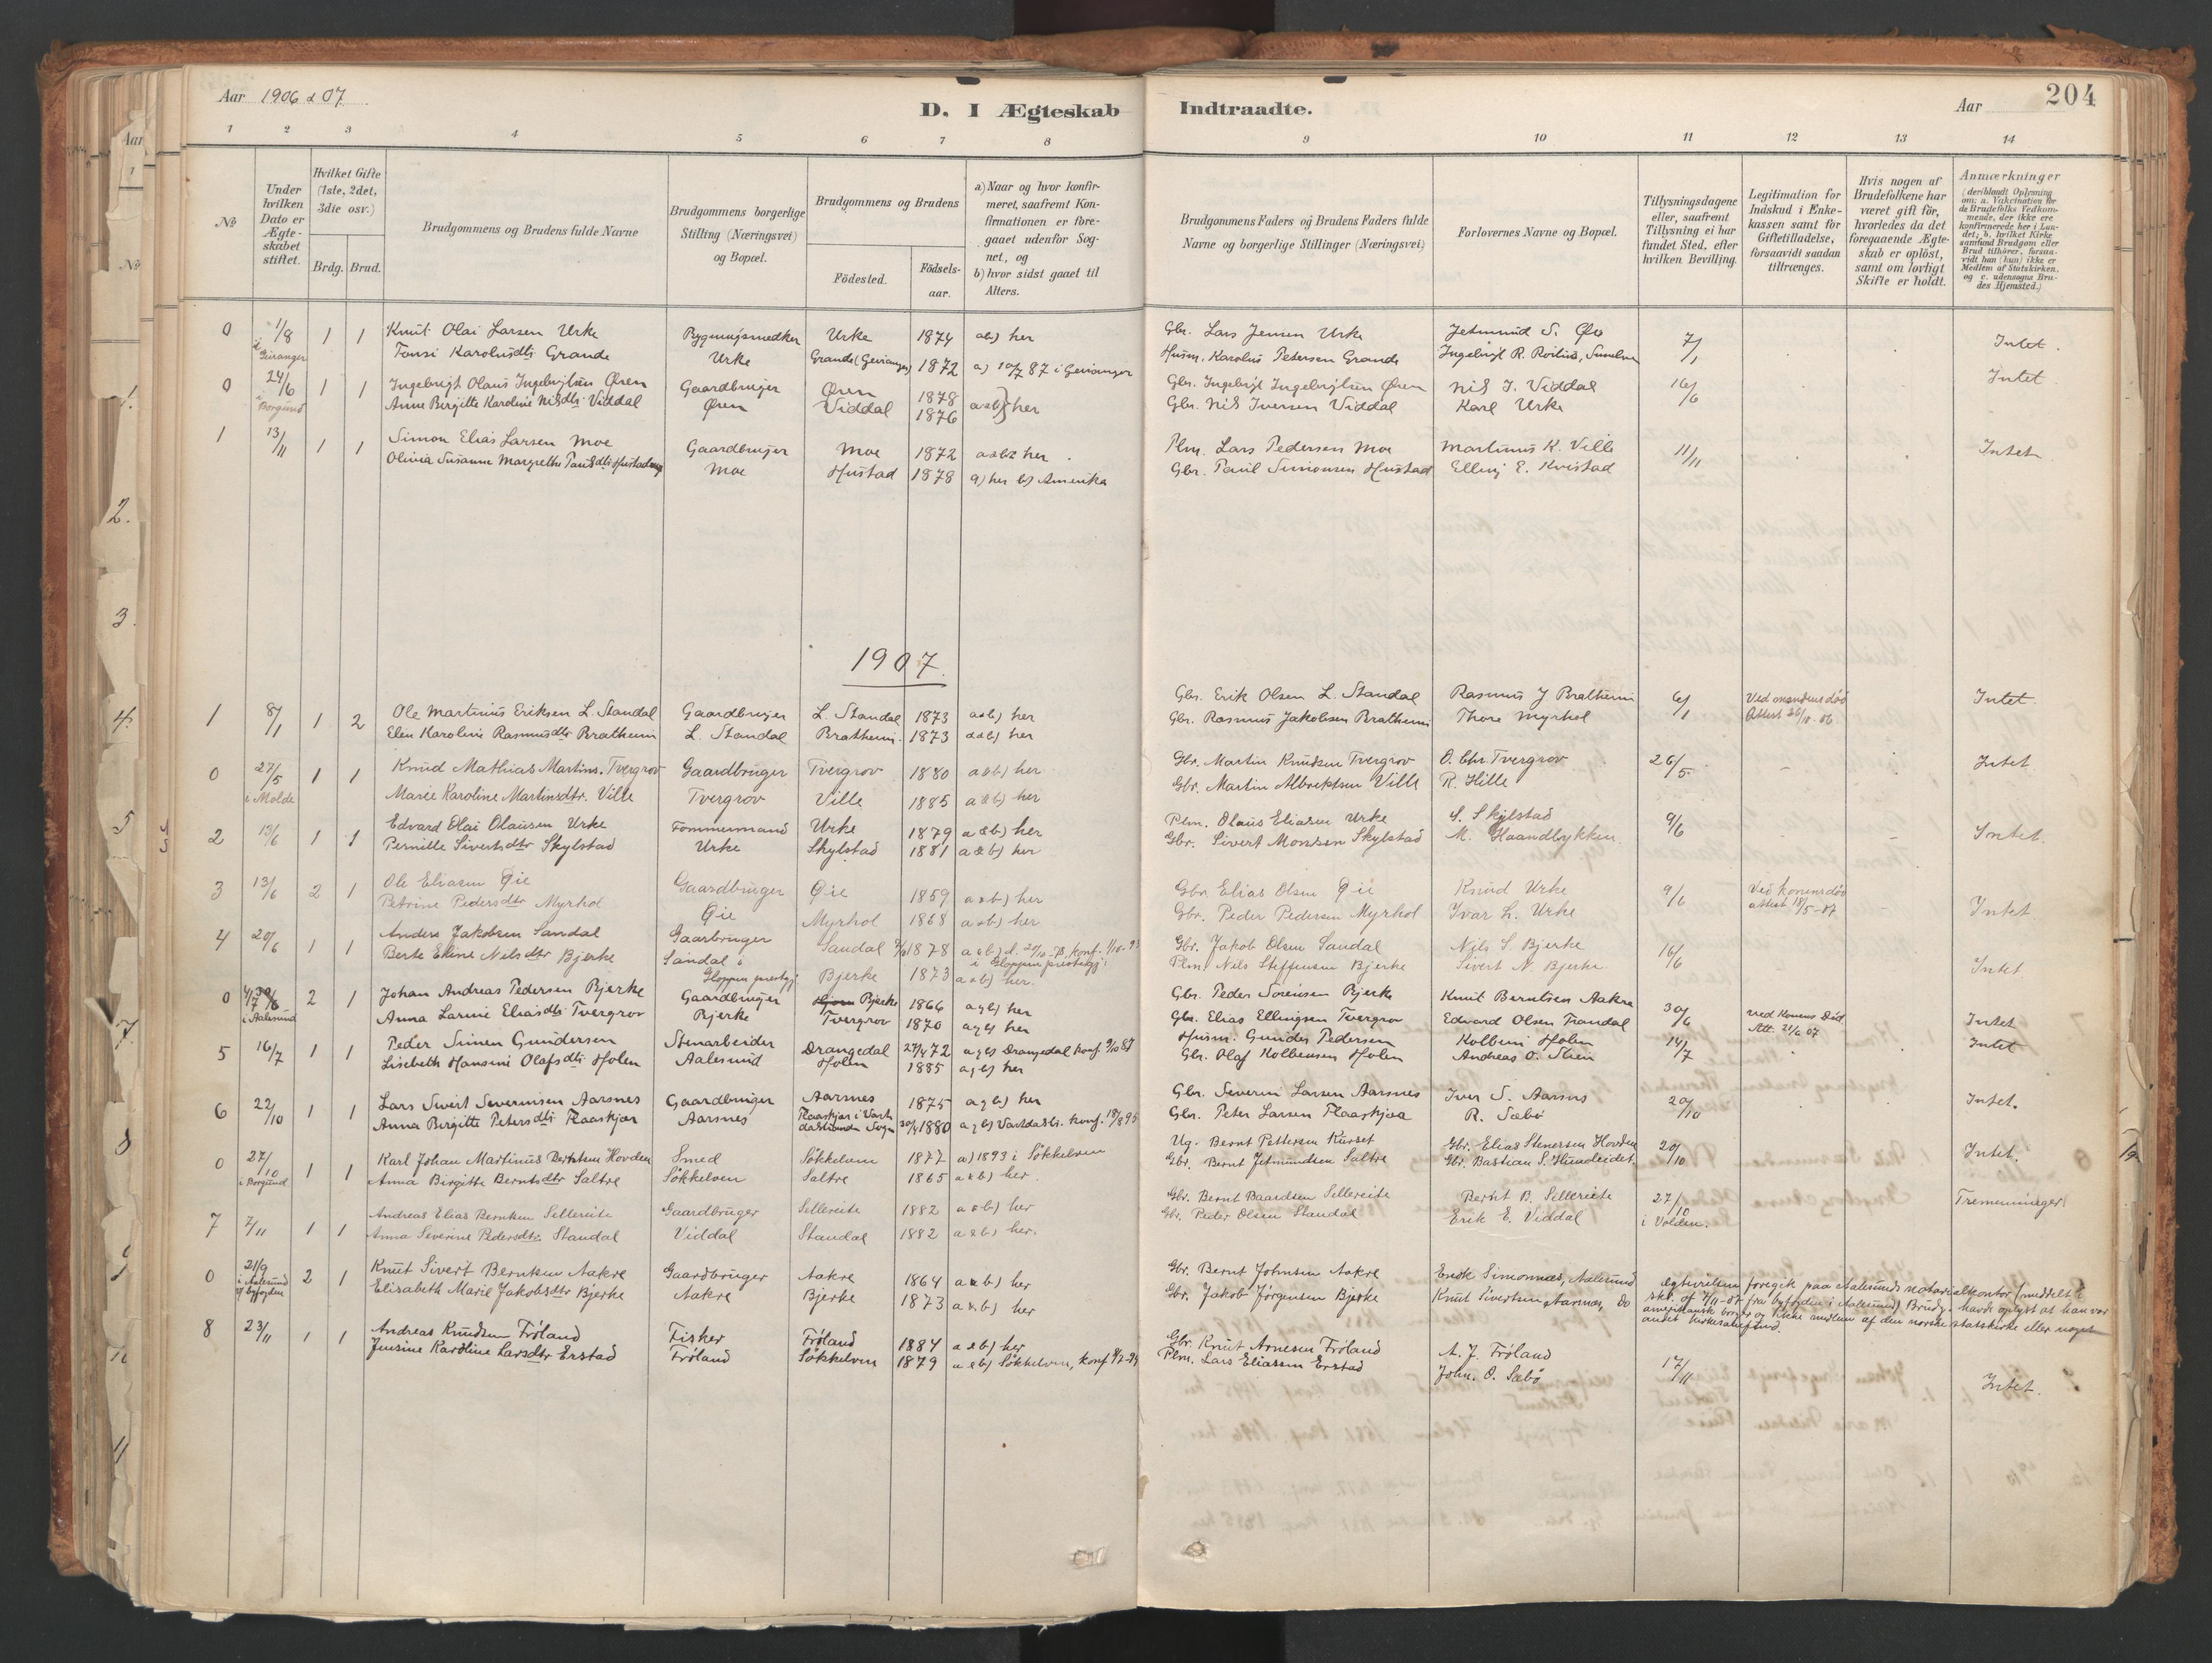 Aar 1906 & 07
D. I Ægteskab Indtraadte.
Aar 204
1 2 3 4 5 6 7 8 9 10 11 12 13 14
No
Under hvilken Dato er Ægteskabet stiftet.
Hvilket Gifte (1ste, 2det, 3die osv.)
Brdg. Brud.
Brudgommens og Brudens fulde Navne
Brudgommens borgerlige Stilling (Næringsvei) og Bopæl.
Brudgommens og Brudens
Födested. Födsels-aar.
a) Naar og hvor konfirmeret, saafremt Konfirmationen er foregaaet udenfor Sognet, og
b) hvor sidst gaaet til Alters.
Brudgommens Faders og Brudens Faders fulde Navne og borgerlige Stillinger (Næringsvei)
Forlovernes Navne og Bopæl.
Tillysningsdagene eller, saafremt Tillysning ei har fundet Sted, efter hvilken Bevilling.
Legitimation for Indskud i Enkekassen samt for Giftetilladelse, forsaavidt saadan tiltrænges.
Hvis nogen af Brudefolkene har været gift för, hvorledes da det foregaaende Ægteskab er oplöst, samt om lovligt Skifte er holdt.
Anmærkninger (deriblandt Oplysning om: a. Vakcination for de Brudefolks Vedkommende, der ikke ere konfirmerede her i Landet; b. hvilket Kirkesamfund Brudgom eller Brud tilhörer, forsaavidt han (hun) ikke er Medlem af Statskirken, og c. udensogns Brudes Hjemsted.)
0 1/8 1 1 Knut Olai Larsen Urke Urke 1874 a&b) her Gbr. Lars Jensen Urke Jetmund S. Øie 7/1 Intet.
i Geiranger Karolusdtr Grande Urke Grande (Geiranger) 1872 a) 10/7 87 i Geiranger Husm. Karolus Petersen Grande Ingebrigt R.
0 24/6 1 1 Ingebrigt Olaus Ingebrigtsen Øren Gaardbruger Øren 1878 a&b) her Gbr. Ingebrigt Ingebrigtsen Øren Nils J. Viddal 16/6 Intet
i Borgund Anne Birgitte Karoline Nilsdtr Viddal Øren Viddal 1876 Gbr. Nils Iversen Viddal Karl Urke
1 13/11 1 1 Simon Elias Larsen Moe Gaardbruger Moe 1872 a&b her. Plm. Lars Pedersen Moe Martinus K. Ville 11/11 Intet
Olivia Susanne Margrethe Paulsdtr Hustad Moe Hustad 1878 a) her b) Amerika Gbr. Paul Simonsen Hustad Elling E. Kvistad
1907.
1 8/1 1 2 Ole Martinus Eriksen L. Standal Gaardbruger L. Standal 1873 a&b) her Gbr. Erik Olsen L. Standal Rasmus J Bratheim 6/1 Ved mandens död Intet
Elen Karoline Rasmusdtr Bratheim L. Standal Bratheim. 1873 a&b) her Gbr. Rasmus Jakobsen Bratheim Thore Myrhol Attest 26/10-06
0 27/5 1 1 Knud Mathias Martins. Tvergrov Gaardbruger Tvergrov 1880 a&b) her Gbr. Martin Knudsen Tvergrov O. Chr Tvergrov 26/5. Intet
i Molde Marie Karoline Martinsdtr. Ville Tvergrov Ville 1885 a&b) her Gbr. Martin Albrektsen Ville R. Hille
2 13/6 1 1 Edvard Olai Olausen Urke Tömmermand Urke 1879 a&b) her Plm. Olaus Eliasen Urke S. Skylstad 9/6 Intet.
Pernille Sivertsdtr Skylstad Urke Skylstad 1881 a&b) her Gbr. Sivert Monsen Skylstad M. Haandlykken
3 13/6 2 1 Ole Eliasen Øie Gaardbruger Øie 1859 a&b) her Gbr. Elias Olsen Øie Knud Urke 9/6 Ved konens död Intet
Petrine Pedersdtr Myrhol Øie Myrhol 1868 a&b) her Gbr. Peder Pedersen Myrhol Ivar L. Urke attest 18/5-07
4 20/6 1 1 Anders Jakobsen Sandal Gaarbruger Sandal 1878 i Gloppen prestegj. Gbr. Jakob Olsen Sandal Nils S. Bjerke 16/6 Intet
Berte Eline Nilsdtr Bjerke Sandal i Gloppen prestgj. Bjerke 1873 a&b) her. Plm. Nils Steffensen Bjerke Sivert N Bjerke
0 30/6 2 1 Johan Andreas Pedersen Bjerke Gaardbruger Bjerke 1866 a&b) her Gbr. Peder Sørensen Bjerke Knut Berntsen Aakre 30/6 Ved Konens Död Intet
i Aalesund Anna Larine Eliasdtr Tvergrov Bjerke Tvergrov 1870 a&b) her Gbr. Elias Ellingsen Tvergrov Edvard Olsen Trandal Att. 21/6 07
5 16/7 1 1 Peder Simen Gundersen Stenarbeider Drangedal 27/4 72 a&b) Drangedal konf. 9/10 87 Husm. Gunder Pedersen Kolbein Holen 14/7 Intet
Lisebeth Hansine Olafsdtr Holen Aalesund Holen 1885 a&b) her Gbr. Olaf Kolbensen Holen Andreas O.
6 22/10 1 1 Lars Sivert Severinsen Aarsnes Gaardbruger Aarsnes 1875 a&b) her Gbr. Severin Larsen Aarsnes Iver S. Aarsnes 20/10 Intet.
Anna Birgitte Petersdtr Flaaskjær Aarsnes Flaaskjær i Vartdalstranden Sogn 1880 a&b) Vartdalstr. konf. Gbr. Peter Larsen Flaaskjær R. Sæbö
0 27/10 1 1 Karl Johan Martinus Berntsen Hovden Smed Sökkelven 1877 a) 1893 i Sökkelven Ug. Bernt Pettersen Kurset Gbr. Elias Stenersen Hovden 20/10 Intet.
i Borgund Anna Birgitte Berntsdtr Saltre Sökkelven Saltre 1865 a&b) her. Gbr. Bernt Jetmundsen Saltre Gbr. Bastian S. Hundeidet.
7 7/11 1 1 Andreas Elias Berntsen Sellereite Gaardbruger Sellereite 1882 a&b) her Gbr. Bernt Baardsen Sellereite Bernt B. Sellereite 27/10 Tremenninger
Anna Severine Pedersdtr. Standal Viddal Standal 1882 a&b) her. Gbr. Peder Olsen Standal Erik E. Viddal i Volden.
0 21/9 2 1 Knut Sivert Berntsen Aakre Gaardbruger Aakre 1864 a&b) her Gbr. Bernt Johnsen Aakre Erik Simonnæs, Aalesund Ægtevielsen foregik paa Aalesunds notarialkontor (meddelt i
i Aalesund af byfogden Elisabeth Marie Jakobsdtr Bjerke Aakre Bjerke 1873 a&b) her Gbr. Jakob Jørgensen Bjerke Knut Sivertsen Aarsnæs, do skr. af 4/11-07 fra byfogden i Aalesund) Brudg. havde oplyst at han var
amerikansk borger og ikke medlem af den norske statskirke eller noget
andet kirkesamfund.
8 23/11 1 1 Andreas Knudsen Fröland Fisker Fröland 1884 a&b) her Gbr. Knut Arnesen Fröland A. J. Fröland 17/11 Intet.
Jensine Karoline Larsdtr Erstad Fröland Sökkelven 1879 a&b) Sökkelven, konf Plm. Lars Eliassen Erstad John. O. Sæbö